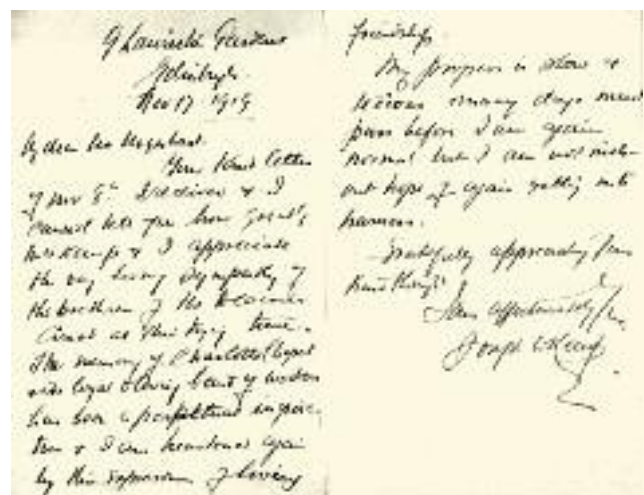 9 Lauriston Gardens
Edinburgh
Nov 17 1919
My dear Mr Urquhart
Your kind letter
of Nov 8th I did receive & I
cannot tell you how greatly
Mrs Kemp & I appreciate
the very loving sympathy of
the brethren of the Deacons
Court at this trying time.
The memory of Charlotte Chapel
with loyal & loving band of workers
has been a perpetual inspira-
tion & I am heartened again
by this expression of loving
friendship.
My progress is slow &
tedious many days must
pass before I am again
normal but I am not with-
out hope of again getting into
harness.
Gratefully appreciating your
kind thought
Yours affectionately
Joseph W Kemp